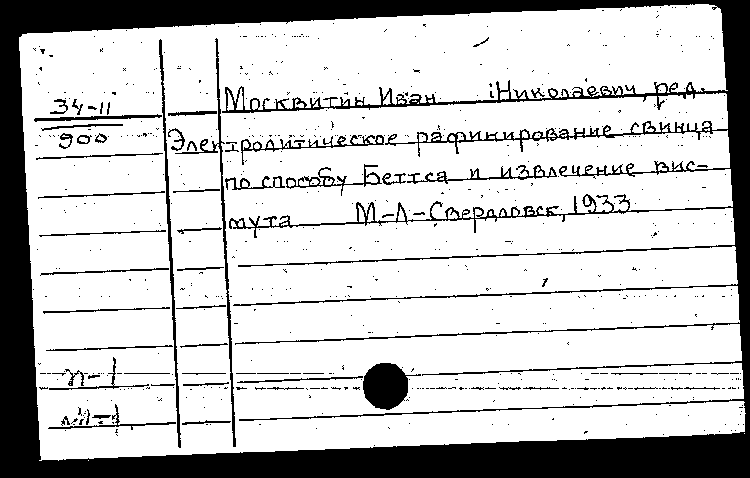 34-11
900
Москвитин, Иван Николаевич, ред.
Электролитическое рафинирование свинца
по способу Беттса и извлечение вис-
мута М.-Л-Свердловск, 1933
п-1